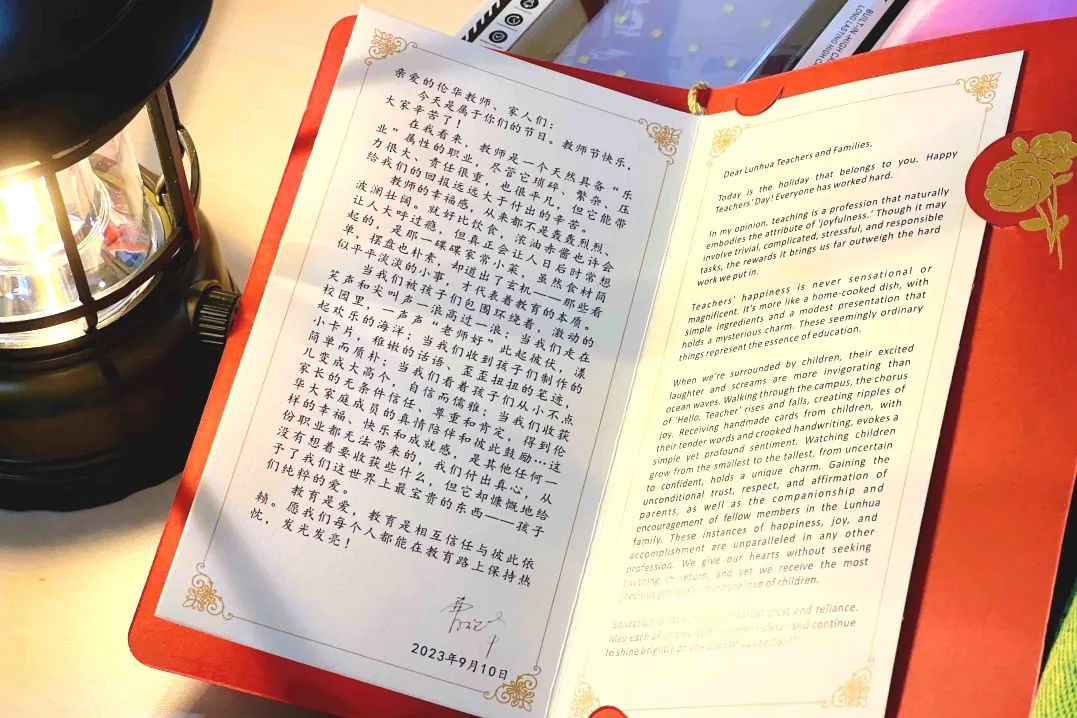 亲爱的伦华教师、家人们：
今天是属于你们的节日。教师节快乐，
大家辛苦了！
在我看来，教师是一个天然具备“乐
业”属性的职业，尽管它琐碎、繁杂、压
力很大、责任很重，也很平凡，但它能带
给我们的回报远远大于付出的辛苦。
教师的幸福感，从来都不是轰轰烈烈、
波澜壮阔。就好比饮食，浓油赤酱也许会
让人大呼过瘾，但真正会让人日后时常想
起的，是那一碟碟家常小菜，虽然食材简
单，摆盘也朴素，却道出了玄机——那些看
似平平淡淡的小事，才代表着教育的本质。
当我们被孩子们包围环绕着，激动的
笑声和尖叫声一浪高过一浪；当我们走在
校园里，一声声“老师好”此起彼伏，漾
起欢乐的海洋；当我们收到孩子们制作的
小卡片，稚嫩的话语、歪歪扭扭的笔迹，
简单而质朴；当我们看着孩子们从小不点
儿变成大高个，自信而儒雅；当我们收获
家长的无条件信任、尊重和肯定，得到伦
华大家庭成员的真情陪伴和彼此鼓励…这
样的幸福、快乐和成就感，是其他任何一
份职业都无法带来的，我们付出真心，从
没有想着要收获些什么，但它却慷慨地给
予了我们这世界上最宝贵的东西——孩子
们纯粹的爱。
教育是爱，教育是相互信任与彼此依
赖。愿我们每个人都能在教育路上保持热
忱，发光发亮！
2023年9月10日
Dear Lunhua Teachers and Families,
Today is the holiday that belongs to you. Happy
Teachers' Day! Everyone has worked hard.
In my opinion, teaching is a profession that naturally
embodies the attribute of 'joyfulness.' Though it may
involve trivial, complicated, stressful, and responsible
tasks, the rewards it brings us far outweigh the hard
work we put in.
Teachers' happiness is never sensational or
magnificent. It's more like a home-cooked dish, with
simple ingredients and a modest presentation that
holds a mysterious charm. These seemingly ordinary
things represent the essence of education.
When we're surrounded by children, their excited
laughter and screams are more invigorating than
ocean waves. Walking through the campus, the chorus
of 'Hello, Teacher' rises and falls, creating ripples of
joy. Receiving handmade cards from children, with
their tender words and crooked handwriting, evokes a
simple yet profound sentiment. Watching children
grow from the smallest to the tallest, from uncertain
to confident, holds a unique charm. Gaining the
unconditional trust, respect, and affirmation of
parents, as well as the companionship and
encouragement of fellow members in the Lunhua
family. These instances of happiness, joy, and
accomplishment are unparalleled in any other
profession. We give our hearts without seeking
anything in return, and yet we receive the most
precious love of children.
Education trust and reliance.
May each of and continue
to shine brightly on the
BUILT-IN HIGH
LONG LASTING HIGH